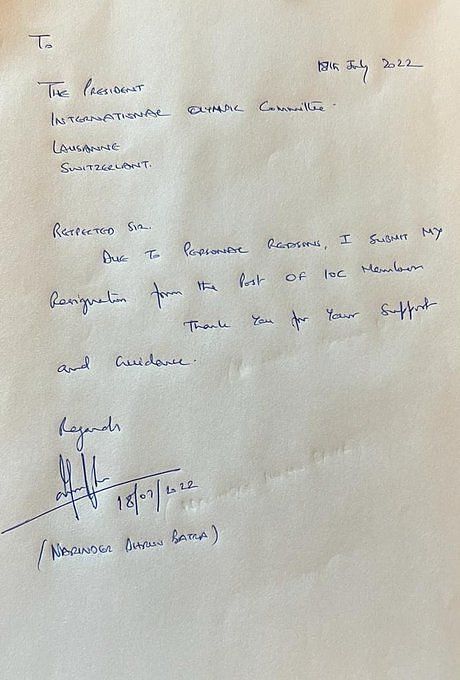 To
18th July 2022
The President
International Olympic Committee.
Lausanne
Switzerland.
Respected Sir.
Due to Personal Reasons, I submit my
Resignation from the Post of IOC Member
Thank You for Your Support
and Guidance.
Regards
18/07/2022
(Narinder Dhruv Batra)